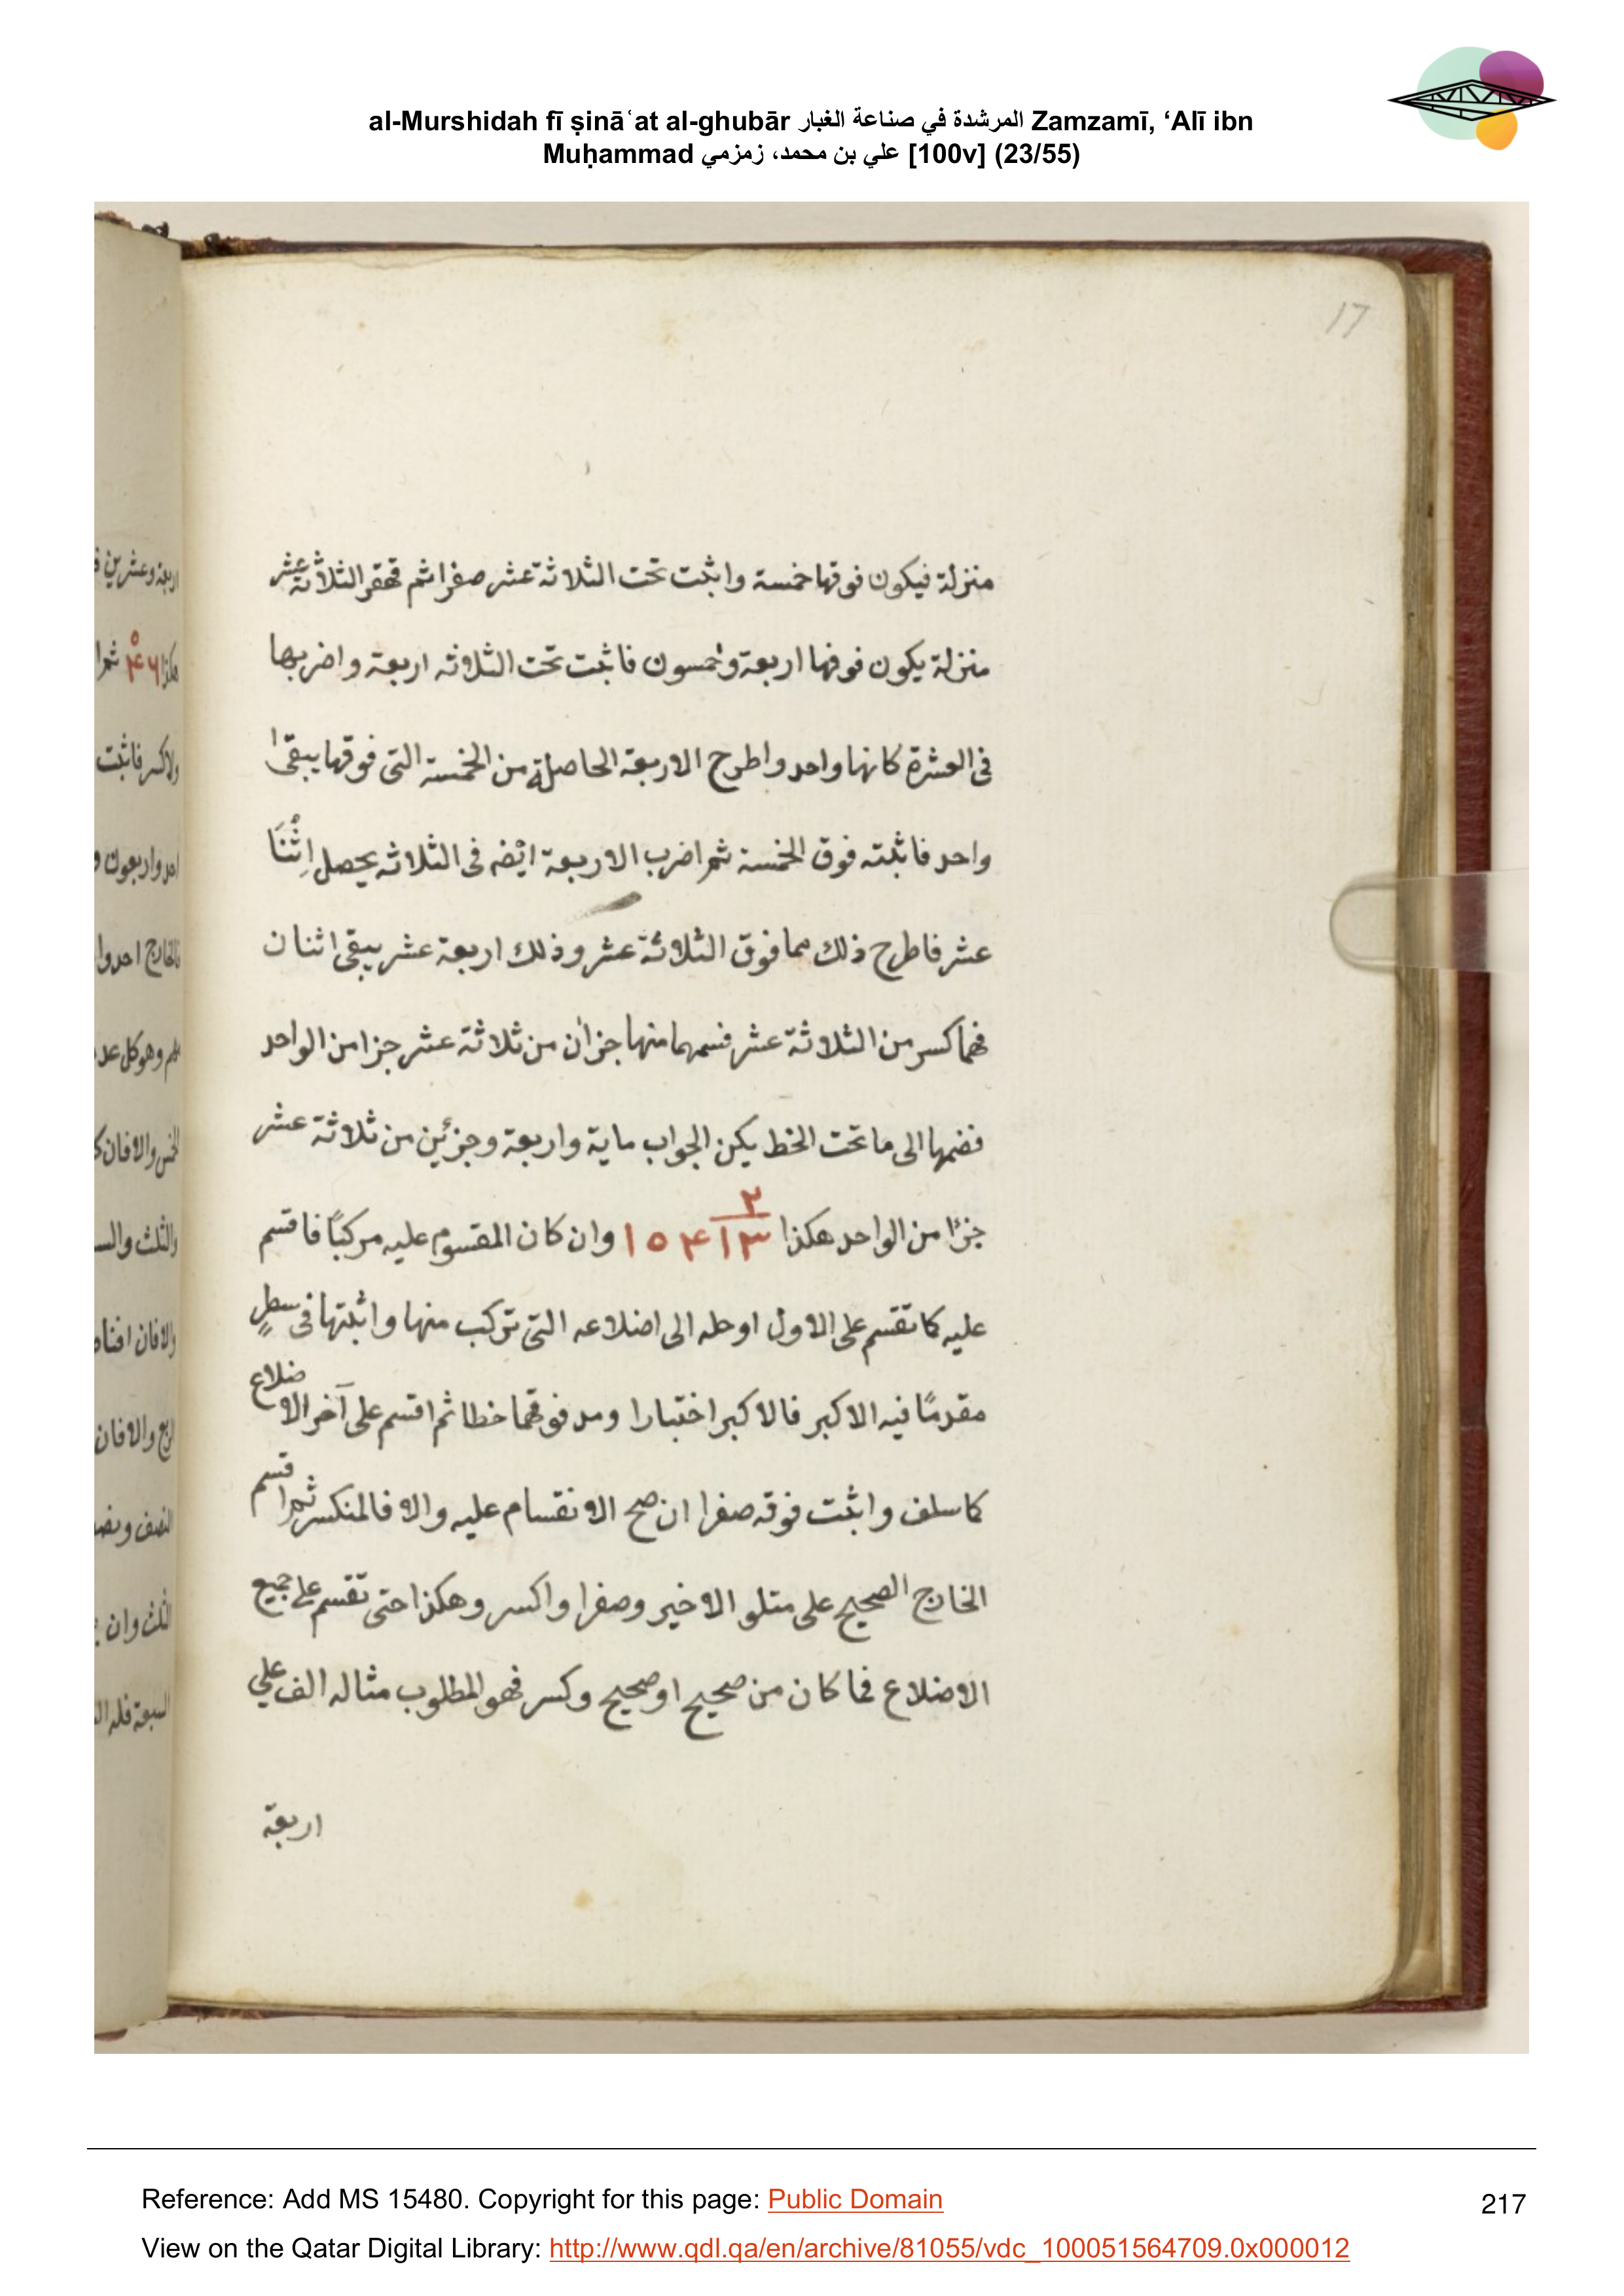 al-Murshidah fī ṣināʿat al-ghubār المرشدة في صناعة الغبار Zamzamī, ‘Alī ibn
Muḥammad علي بن محمد، زمزمي [100v] (23/55)
17
منزلة فيكون فوقها خمسة واثبت تحت الثلاثة عشر صفرا ثم قهقر الثلاثة عشر
منزلة يكون فوقها اربعة وخمسون فاثبت تحت الثلاثه اربعة واضربها
فى العشرة كانها واحد واطرح الاربعة الحاصلة من الخمسة التى فوقها يبقى ا
واحد فاثبته فوق الخمسة ثم اضرب الاربعة ايضه فى الثلاثه يحصل اِثْنَا
عشر فاطرح ذلك مما فوق الثلاثة عشر وذلك اربعة عشر يبقى اثنان
فهما كسر من الثلاثة عشر فسمهما منها جزان من ثلاثة عشر جزا من الواحد
فضمها الى ما تحت الخط يكن الجواب ماية واربعة وجزئين من ثلاثة عشر
جزًا من الواحد هكذا ٢ ١٣ ١٥٤ وان كان المقسوم عليه مركبًا فاقسم
عليه كما تقسم على الاول او حله الى اضلاعه التى تركب منها واثبتها فى سطرٍ
مقدمًا فيه الاكبر فالاكبر اختبارا ومد فوقهما خطا ثم اقسم على آخر الاضلاع
كما سلف واثبت فوقه صفرا ان صح الانقسام عليه والا فالمنكسر ثم اقسم
الخارج الصحيح على متلو الاخير وصفرا واكسر وهكذا حتى تقسم على جميع
الاضلاع فما كان من صحيح او صحيح وكسر فهو المطلوب مثاله الف على
اربعة
اربعة وعشرين
هكذا
ولاكسر فاثبت
احد واربعون
وهو كل عدد
والثلث
والافان
السبعة فله
Reference: Add MS 15480. Copyright for this page: Public Domain
217
View on the Qatar Digital Library: http://www.qdl.qa/en/archive/81055/vdc_100051564709.0x000012